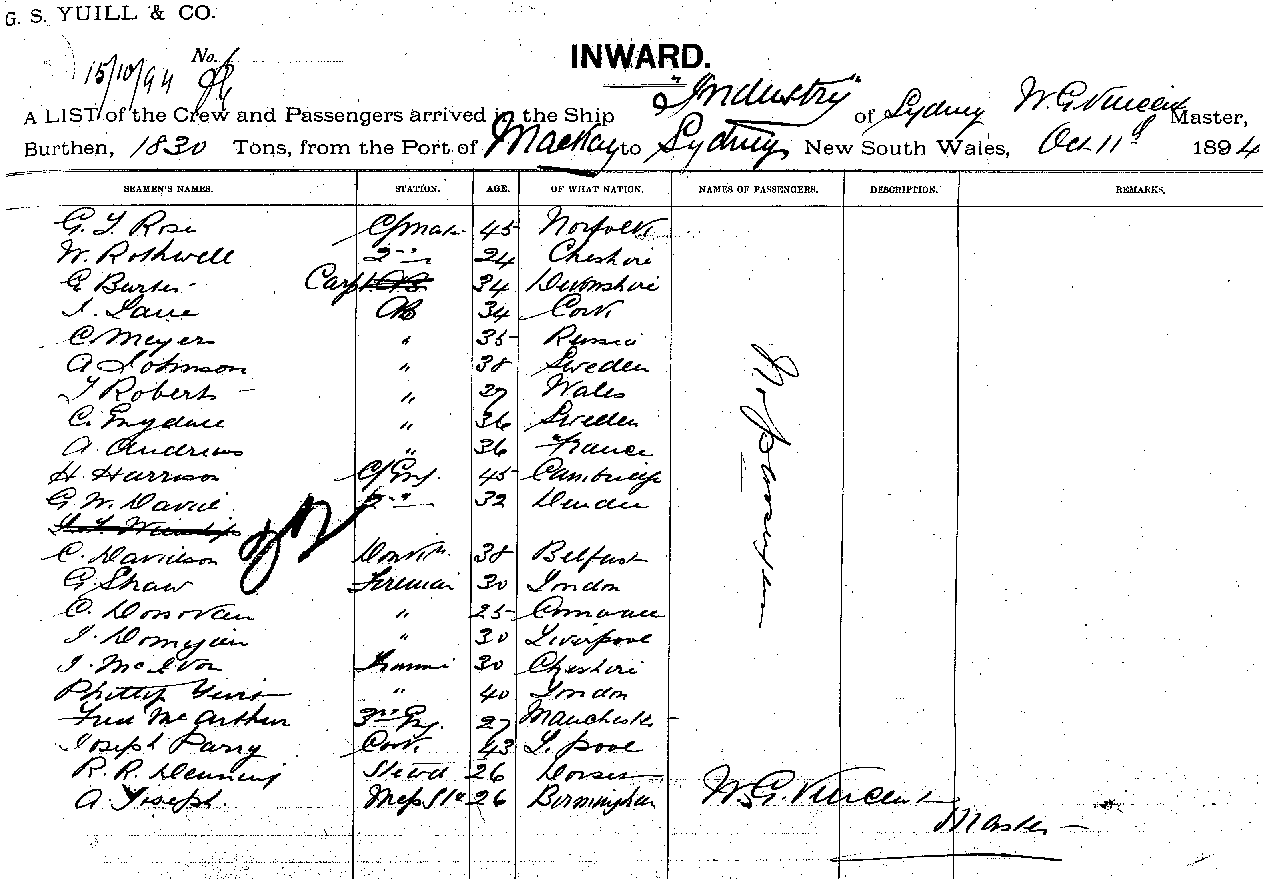 G. S. YUILL & CO.
15/10/94 No.
INWARD.
A LIST of the Crew and Passengers arrived in the Ship "Industry" of Sydney W. G. Vincent Master,
Burthen, 1830 Tons, from the Port of Mackay to Sydney, New South Wales, Oct 11th 1894
SEAMEN'S NAMES. STATION. AGE. OF WHAT NATION. NAMES OF PASSENGERS. DESCRIPTION. REMARKS.
G. Rose 45 Norfolk
W. Rothwell 2nd 24 Cheshire
34 Devonshire
Lane AB 34 Cork
C Meyers " 35 Russia
A Johnson " 38 Sweden
Roberts " 27 Wales
C. " 36 Sweden
A. Andrews " 36 France
H. Harrison 45 Cambridge
G. W. Davie 2nd 32 Dundee
C. Davidson 38 Belfast
G. Shaw Fireman 30 London
C. Donovan " 25
" 30 Liverpool
30 Cheshire
" 40 London
Fred McArthur 3rd 27 Manchester
Joseph Parry Cook 43 L. pool
R. R. Denning Stewd 26 Dorset
A Joseph. Mess 26 Birmingham
22
No passengers
W. G. Vincent
Master